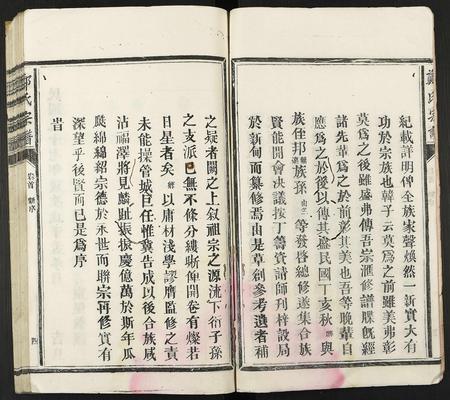 紀載詳明俾全族家聲煥然一新實大有
功於宗族也韓子云莫為之前雖美弗彰
莫為之後雖盛弗傳吾宗滙修譜牒旣經
諸先輩為之於前彰其美也吾等晚輩自
應為之於後以傳其盛民國丁亥秋 與
族侄邦 族孫 等發啓總修遂集合族
賢能開會決議按丁籌資請師刋梓設局
於新甸而纂修焉由是草創參考遺者補
之疑者闕之上叙祖宗之源流下衍子孫
之支派已無不條分縷晰俾開卷有燦若
日星者矣 以庸材淺學謬膺監修之責
未能操管城巨任惟冀告成以後合族咸
沾福澤將見麟趾振振慶億萬於斯年瓜
瓞綿綿紹宗德於永世而聯宗再修實有
深望乎後賢而已是為序
旹
鄭氏宗譜
卷首
四